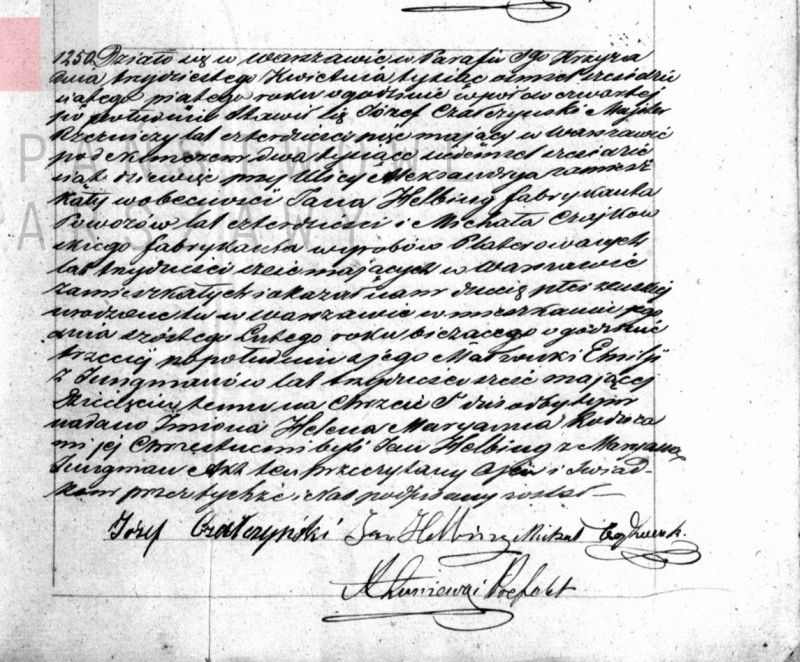 1250. Działo się w Warszawie w Parafii Sgo Krzyża
dnia trzydziestego Kwietnia tysiąc ośmset sześćdzie
siątego piątego roku o godzinie wpół do czwartej
po południu Stawił się Józef Czałczyński Majster
Rzeźniczy lat czterdzieści pięć mający w Warszawie
pod Numerem dwa tysiące siedmset sześćdzie
siąt dziewięć przy Ulicy Aleksandrya zamiesz
kały w obecności Jana Helbing fabrykanta
Powozów lat czterdzieści i Michała Czajkow
skiego fabrykanta wyrobów Platerowanych
lat trzydzieści sześć mających w Warszawie
zamieszkałych i okazał nam dziecię płci żeńskiej
urodzone tu w Warszawie w mieszkaniu jego
dnia szóstego Lutego roku bieżącego o godzinie
trzeciej po południu z jego Małżonki Emilji
z Jungmanów lat trzydzieści sześć mającej
Dziecięciu temu na Chrzcie S. dziś odbytym
nadano Imiona Helena Maryanna Rodzica
mi jej Chrzestnemi byli Jan Helbing z Maryanną
Jungman Akt ten przeczytany Ojcu i Świad-
kom przez tychże i Nas podpisany został
Józef Czałczyński Jan Helbing Michał
Prefekt
PAŃSTWOWE